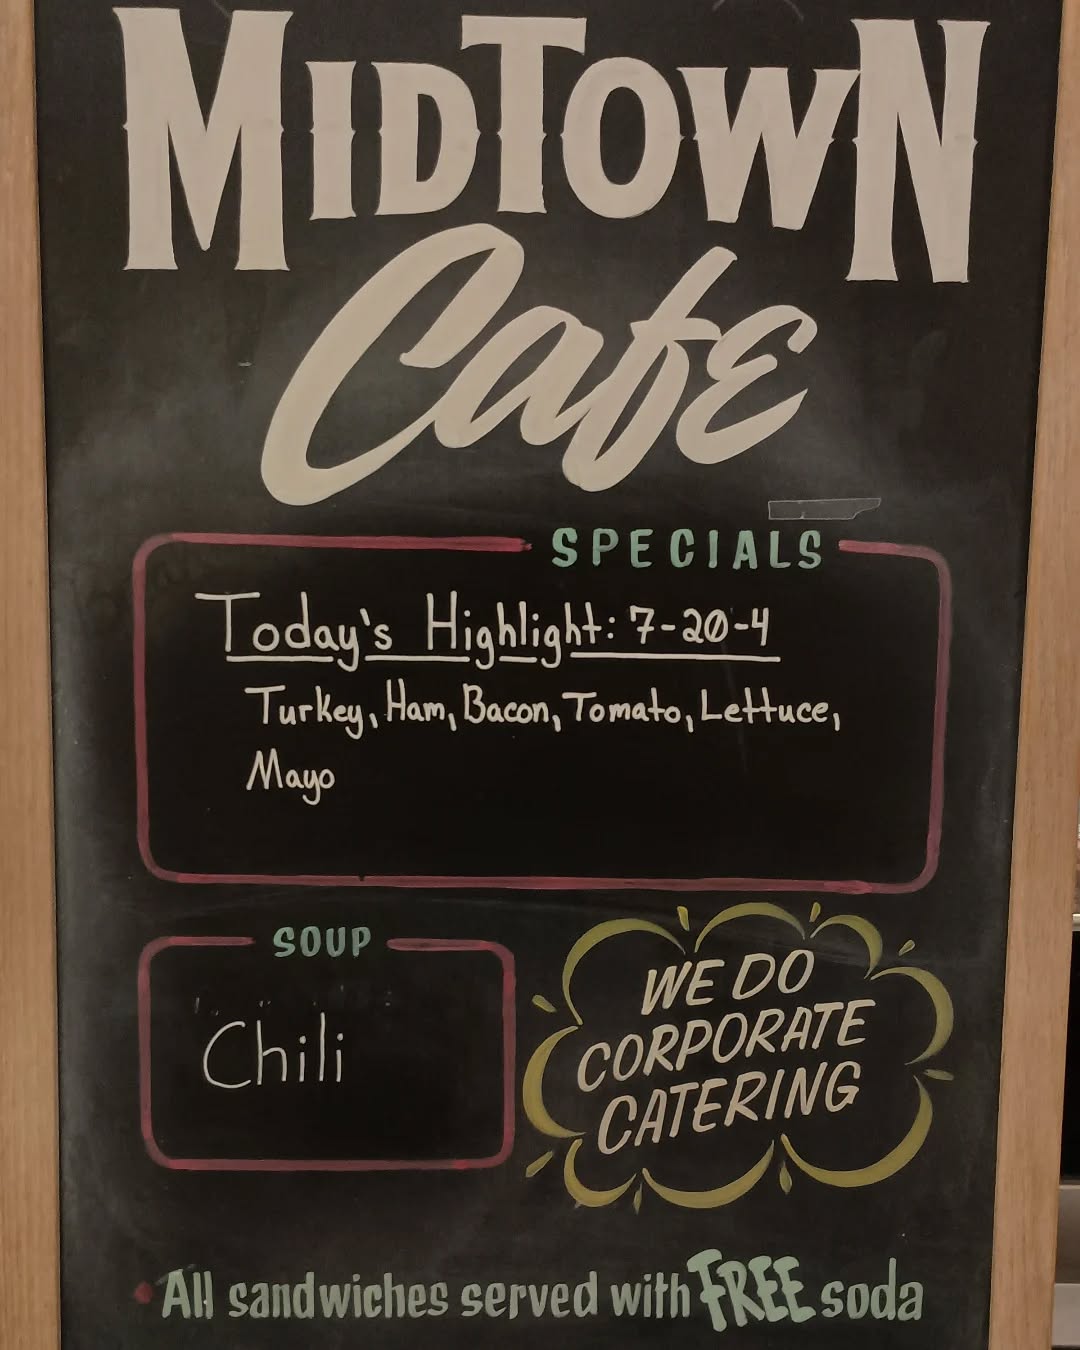 MIDTOWN
Cafe
SPECIALS
Today's Highlight: 7-20-4
Turkey, Ham, Bacon, Tomato, Lettuce,
Mayo
SOUP
Chili
WE DO
CORPORATE
CATERING
All sandwiches served with FREE soda